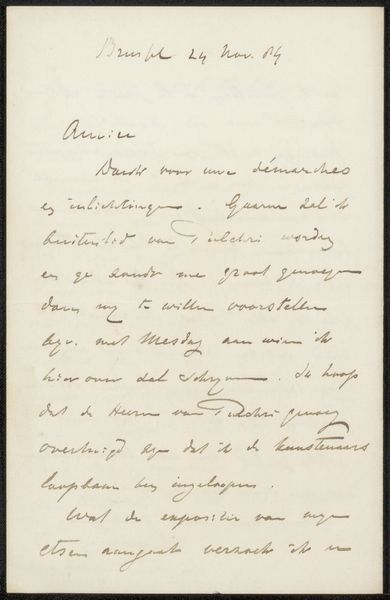 Brussel 24 Nov. 84
Amice
Dank voor uwe démarches
en inlichtingen. Gaarne zal ik
buitenlid van Pulchri worden
en ge zoudt me groot genoegen
doen my te willen voorstellen
bijv. met Mesdag aan wien ik
hier over zal schryven. Ik hoop
dat de Heeren van Pulchri genoeg
overtuigd zyn dat ik de kunstenaars
loopbaan ben ingeloopen.
Wat de expositie van myn
etsen aangaat verzoek ik u